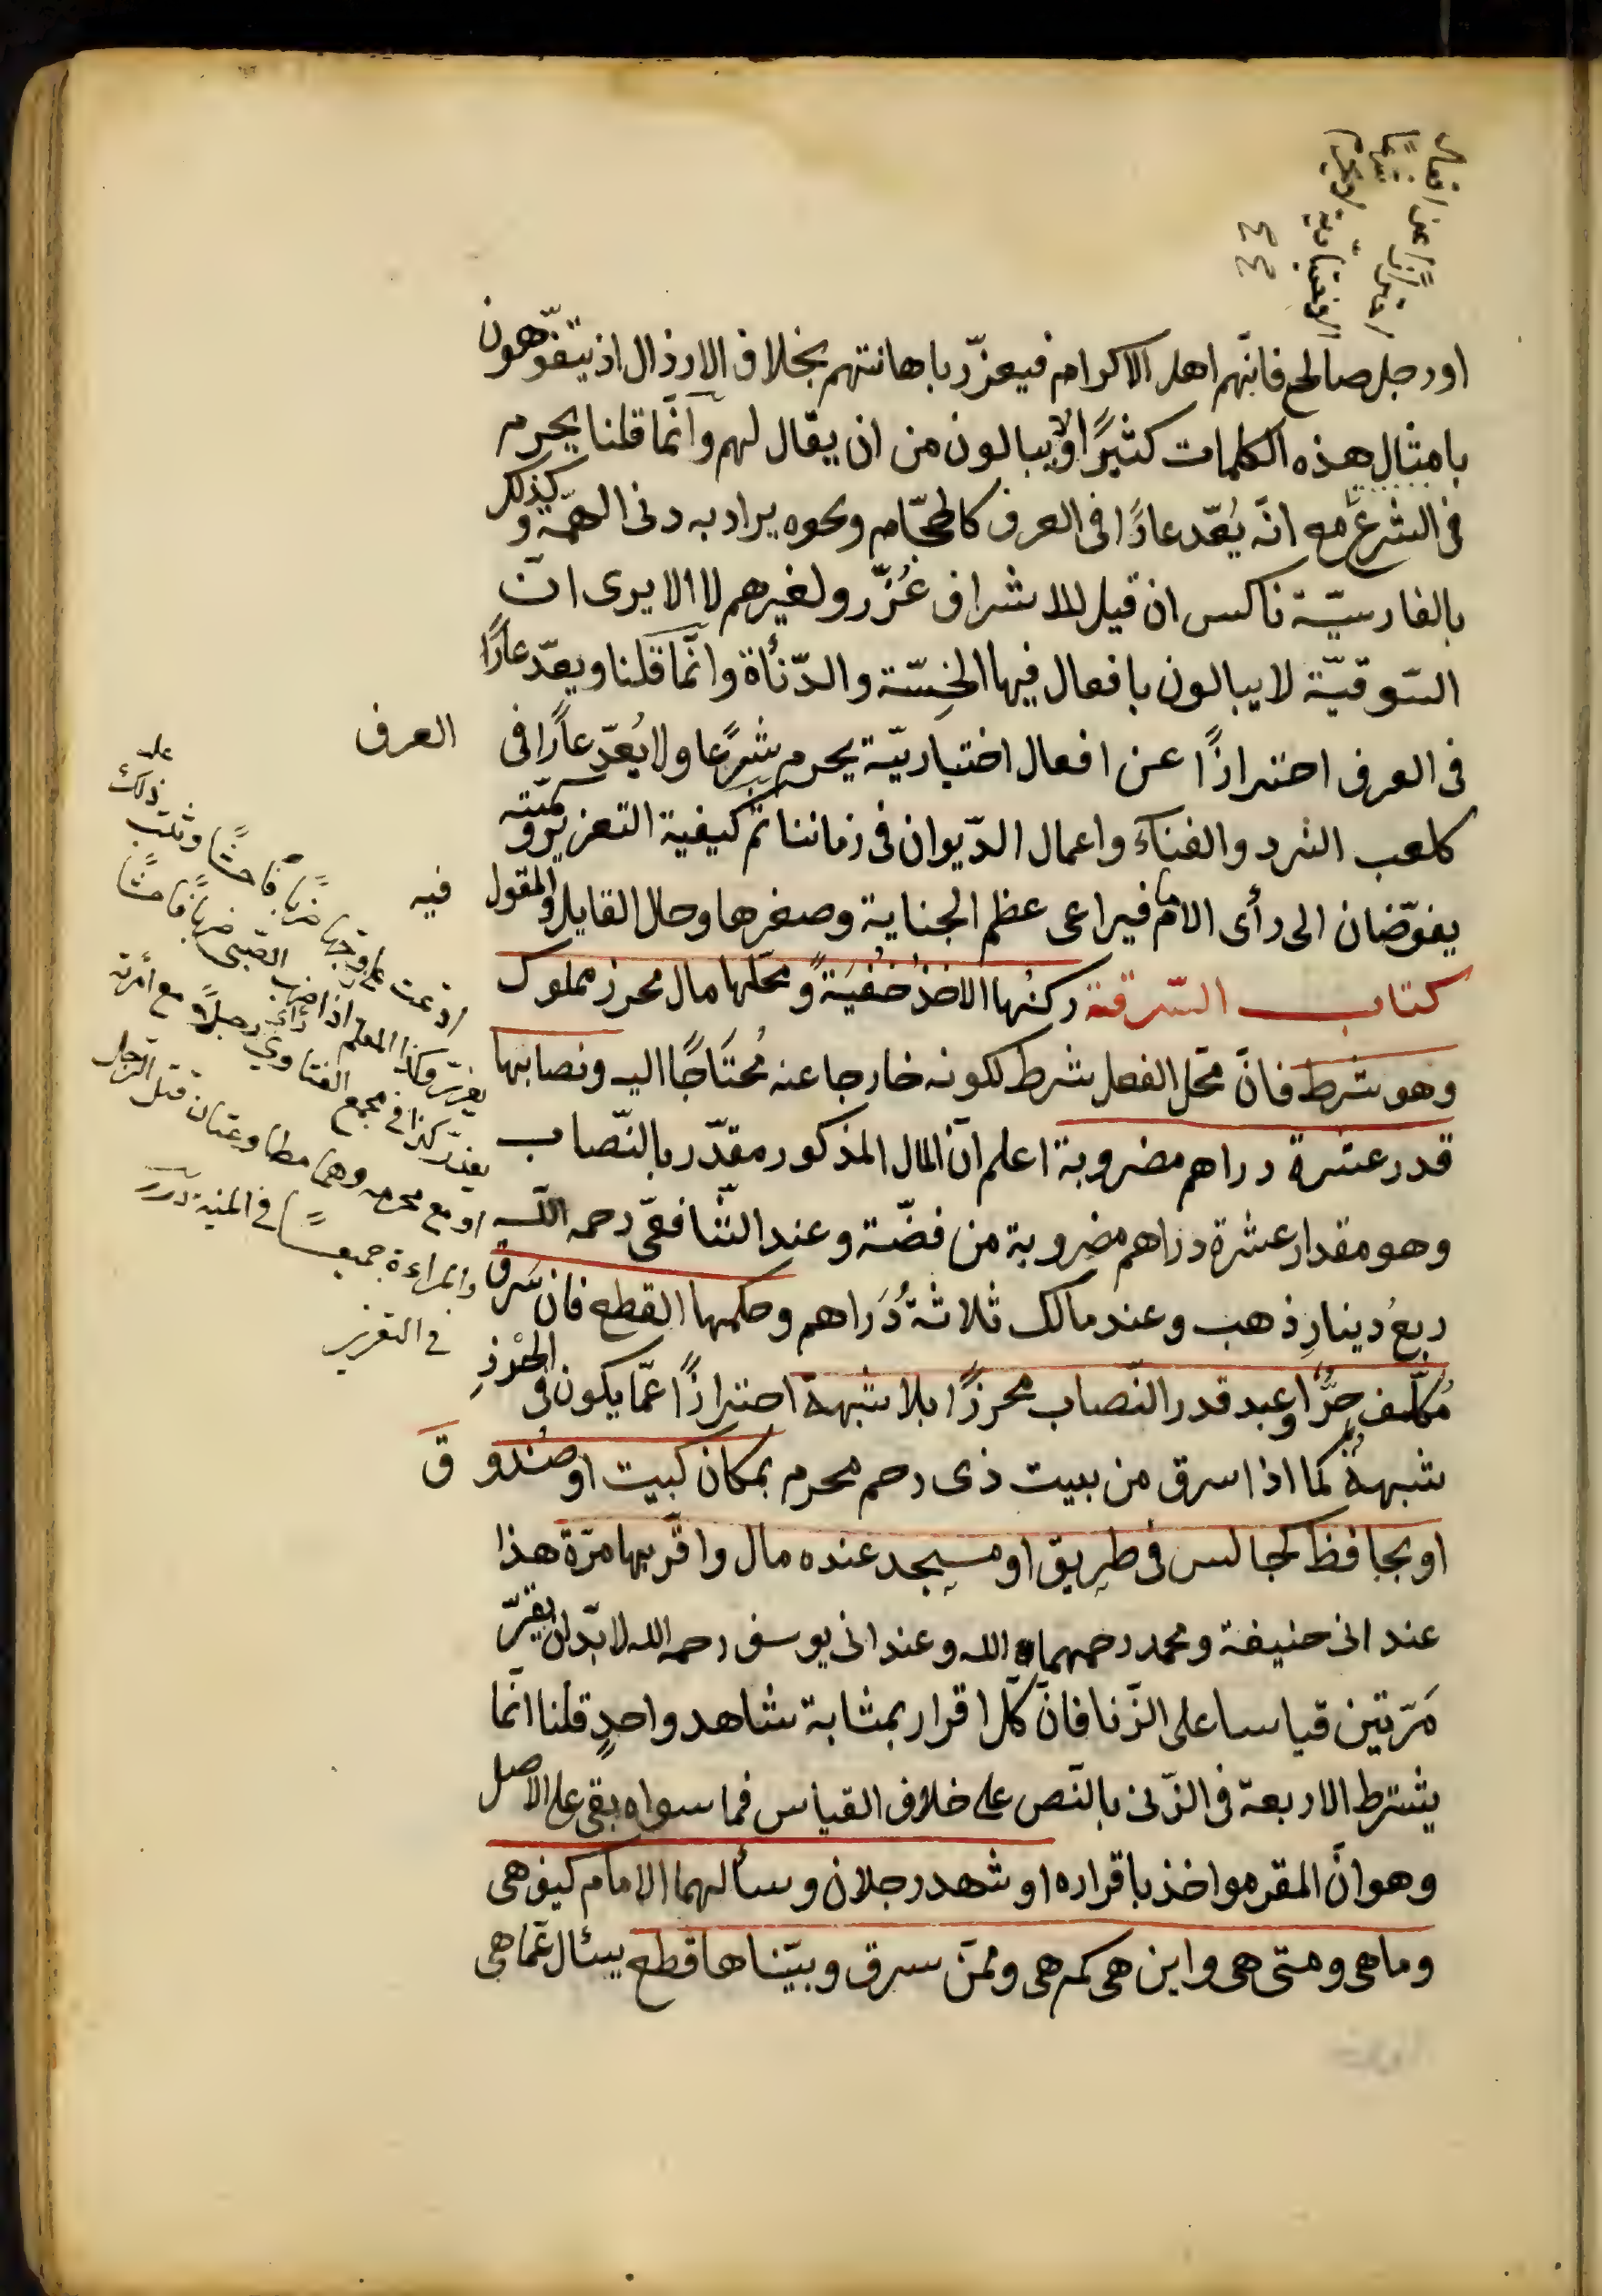 او رجل صالح فانّهم اهل الاكرام فيعزّر باهانتهم بخلاف الارذال اذ يتفوّهون
بامثال هذه الكلمات كثيرًا ولا يبالون من ان يقال لهم وانّما قلنا يحرم
فى الشرع مع انّه يُعّد عارًا فى العرف كالحجّام ونحوه يراد به دنى الهمّة وكذلك
بالفارسيّة ناكس ان قيل للاشراف عُزّر ولغيرهم لا الا يرى انّ
السّوقيّة لا يبالون بافعال فيها الخِسّة والدّنأة وانّما قلنا ويعدّ عارًا
فى العرف احترازًا عن افعال اختياريّة يحرم شرعا ولا يُعدّ عارًا فى
العرف
كلعب النرد والغناء واعمال الدّيوان فى زماننا ثم كيفية التعزير وكميّته
يفوّضان الى رأى الامام فيراعى عظم الجناية وصغرها وحال القايل والمقول
فيه
كتاب السّرقة ركنُها الاخذُ خُفْيَةً ومحلّها مال محرز مملوك
وهو شرط فانّ محلّ الفعل شرط لكونه خارجا عنه مُحتَاجًا اليه ونصابها
قدر عشرة دراهم مضروبة اعلم انّ المال المذكور مقدّر بالنّصاب
وهو مقدار عشرة دراهم مضروبة من فضّة وعند الشّافعىّ رحمه اللّه
ربعُ دينارِ ذهب وعند مالك ثلاثةُ دَراهم وحكمها القطع فان سَرق
مُكلّف حرٌّ او عبد قدر النّصاب محرزًا بلا شبهة احترازًا عمّا يكون فى الحْرْزِ
شبهةٌ كما اذا سرق من بيت ذى رحم محرم بمكان كبيت او صُندوق
او بحافظ كجالس فى طريق او مسجد عنده مال واقرّ بها مرّة هذا
عند ابى حنيفة ومحمد رحمهما الله وعند ابى يوسف رحمه الله لا بدّ ان يقرّ
مَرّتين قياسا على الزّنا فانّ كلّ اقرار بمثابة شاهد واحدٍ قلنا انّما
يشترط الاربعة فى الزّنى بالنّص على خلاف القياس فما سواه بقى على الاصل
وهو انّ المقر مواخذ باقراره او شهد رجلان وسألهما الامام كيف هى
وما هى ومتى هى واين هى كم هى وممّن سرق وبيّناها قطع يسئال عمّا هى
ادّعت على زوجها ضربًا فاحشًا وثبت ذلك عليه
يعزر وكذا المعلم اذا ضرب الصّبى ضربًا فاحشًا
يعزر كذا فى مجمع الفتاوى رأى رجلًا مع امرأته
او مع محرمه وهما مطاوعتان قتل الرّجل
والمراءة جميعًا فى المنية درر
فى التعزير